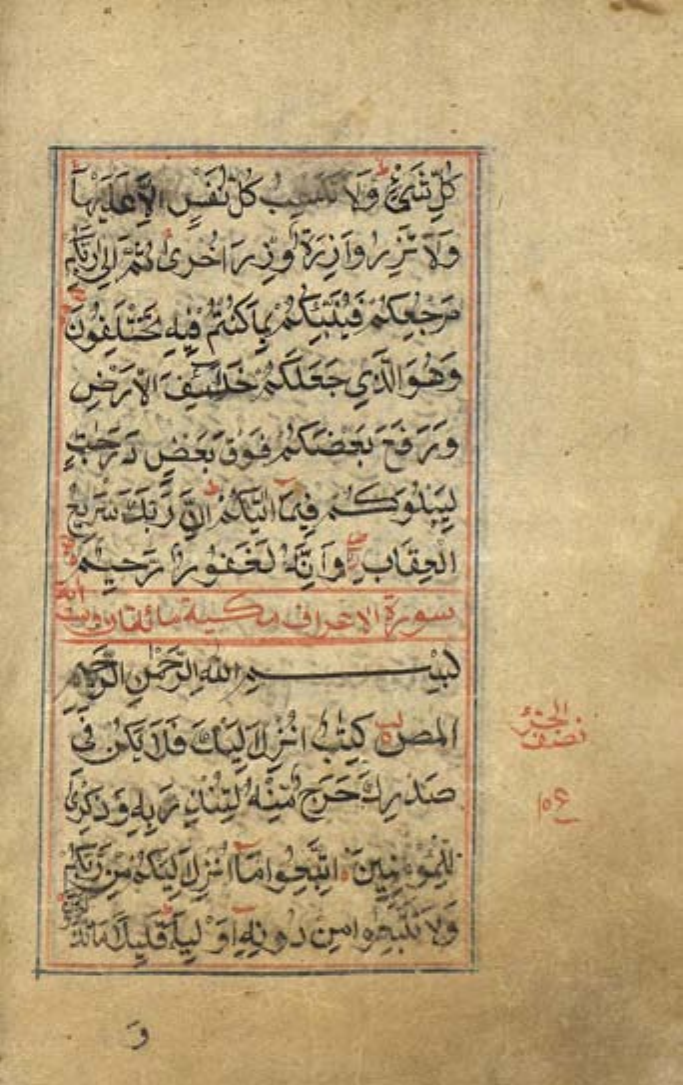 كُلِّ شَيْءٍ وَلَا تَكْسِبُ كُلُّ نَفْسٍ اِلَّا عَلَيْهَا
وَلَا تَزِرُ وَازِرَةٌ وِّزْرَ اُخْرٰى ثُمَّ اِلٰى رَبِّكُمْ
مَرْجِعُكُمْ فَيُنَبِّئُكُمْ بِمَا كُنْتُمْ فِيْهِ تَخْتَلِفُوْنَ
وَهُوَ الَّذِيْ جَعَلَكُمْ خَلٰئِفَ الْاَرْضِ
وَرَفَعَ بَعْضَكُمْ فَوْقَ بَعْضٍ دَرَجٰتٍ
لِّيَبْلُوَكُمْ فِيْمَا اٰتٰىكُمْ اِنَّ رَبَّكَ سَرِيْعُ
الْعِقَابِ وَاِنَّهٗ لَغَفُوْرٌ رَّحِيْمٌ
سورة الاعراف مكية مائتان وست اية
بِسْمِ اللّٰهِ الرَّحْمٰنِ الرَّحِيْمِ
المص كِتٰبٌ اُنْزِلَ اِلَيْكَ فَلَا يَكُنْ فِيْ
صَدْرِكَ حَرَجٌ مِّنْهُ لِتُنْذِرَ بِهٖ وَذِكْرٰى
لِلْمُؤْمِنِيْنَ اِتَّبِعُوْا مَا اُنْزِلَ اِلَيْكُمْ مِّنْ رَّبِّكُمْ
وَلَا تَتَّبِعُوْا مِنْ دُوْنِهٖ اَوْلِيَاءَ قَلِيْلًا مَّا تَذَكَّرُوْنَ
نصف الجزء
و